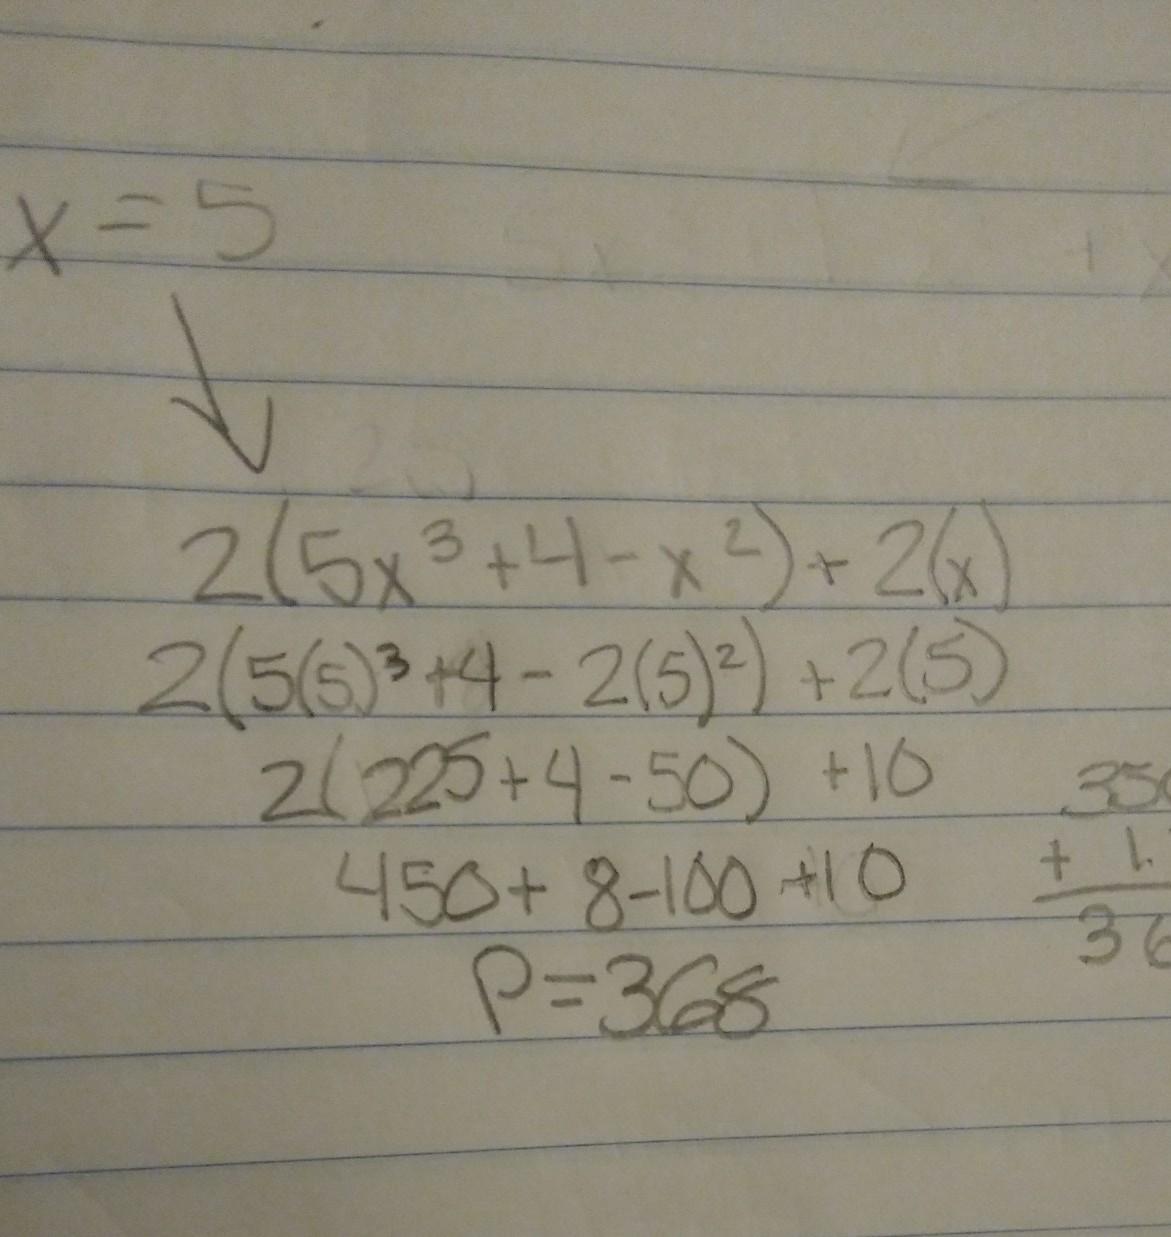 x = 5
2(5x³+4-x²)+2(x)
2(5(5)³+4-2(5)²)+2(5)
2(225+4-50)+10
450+8-100+10
P=368